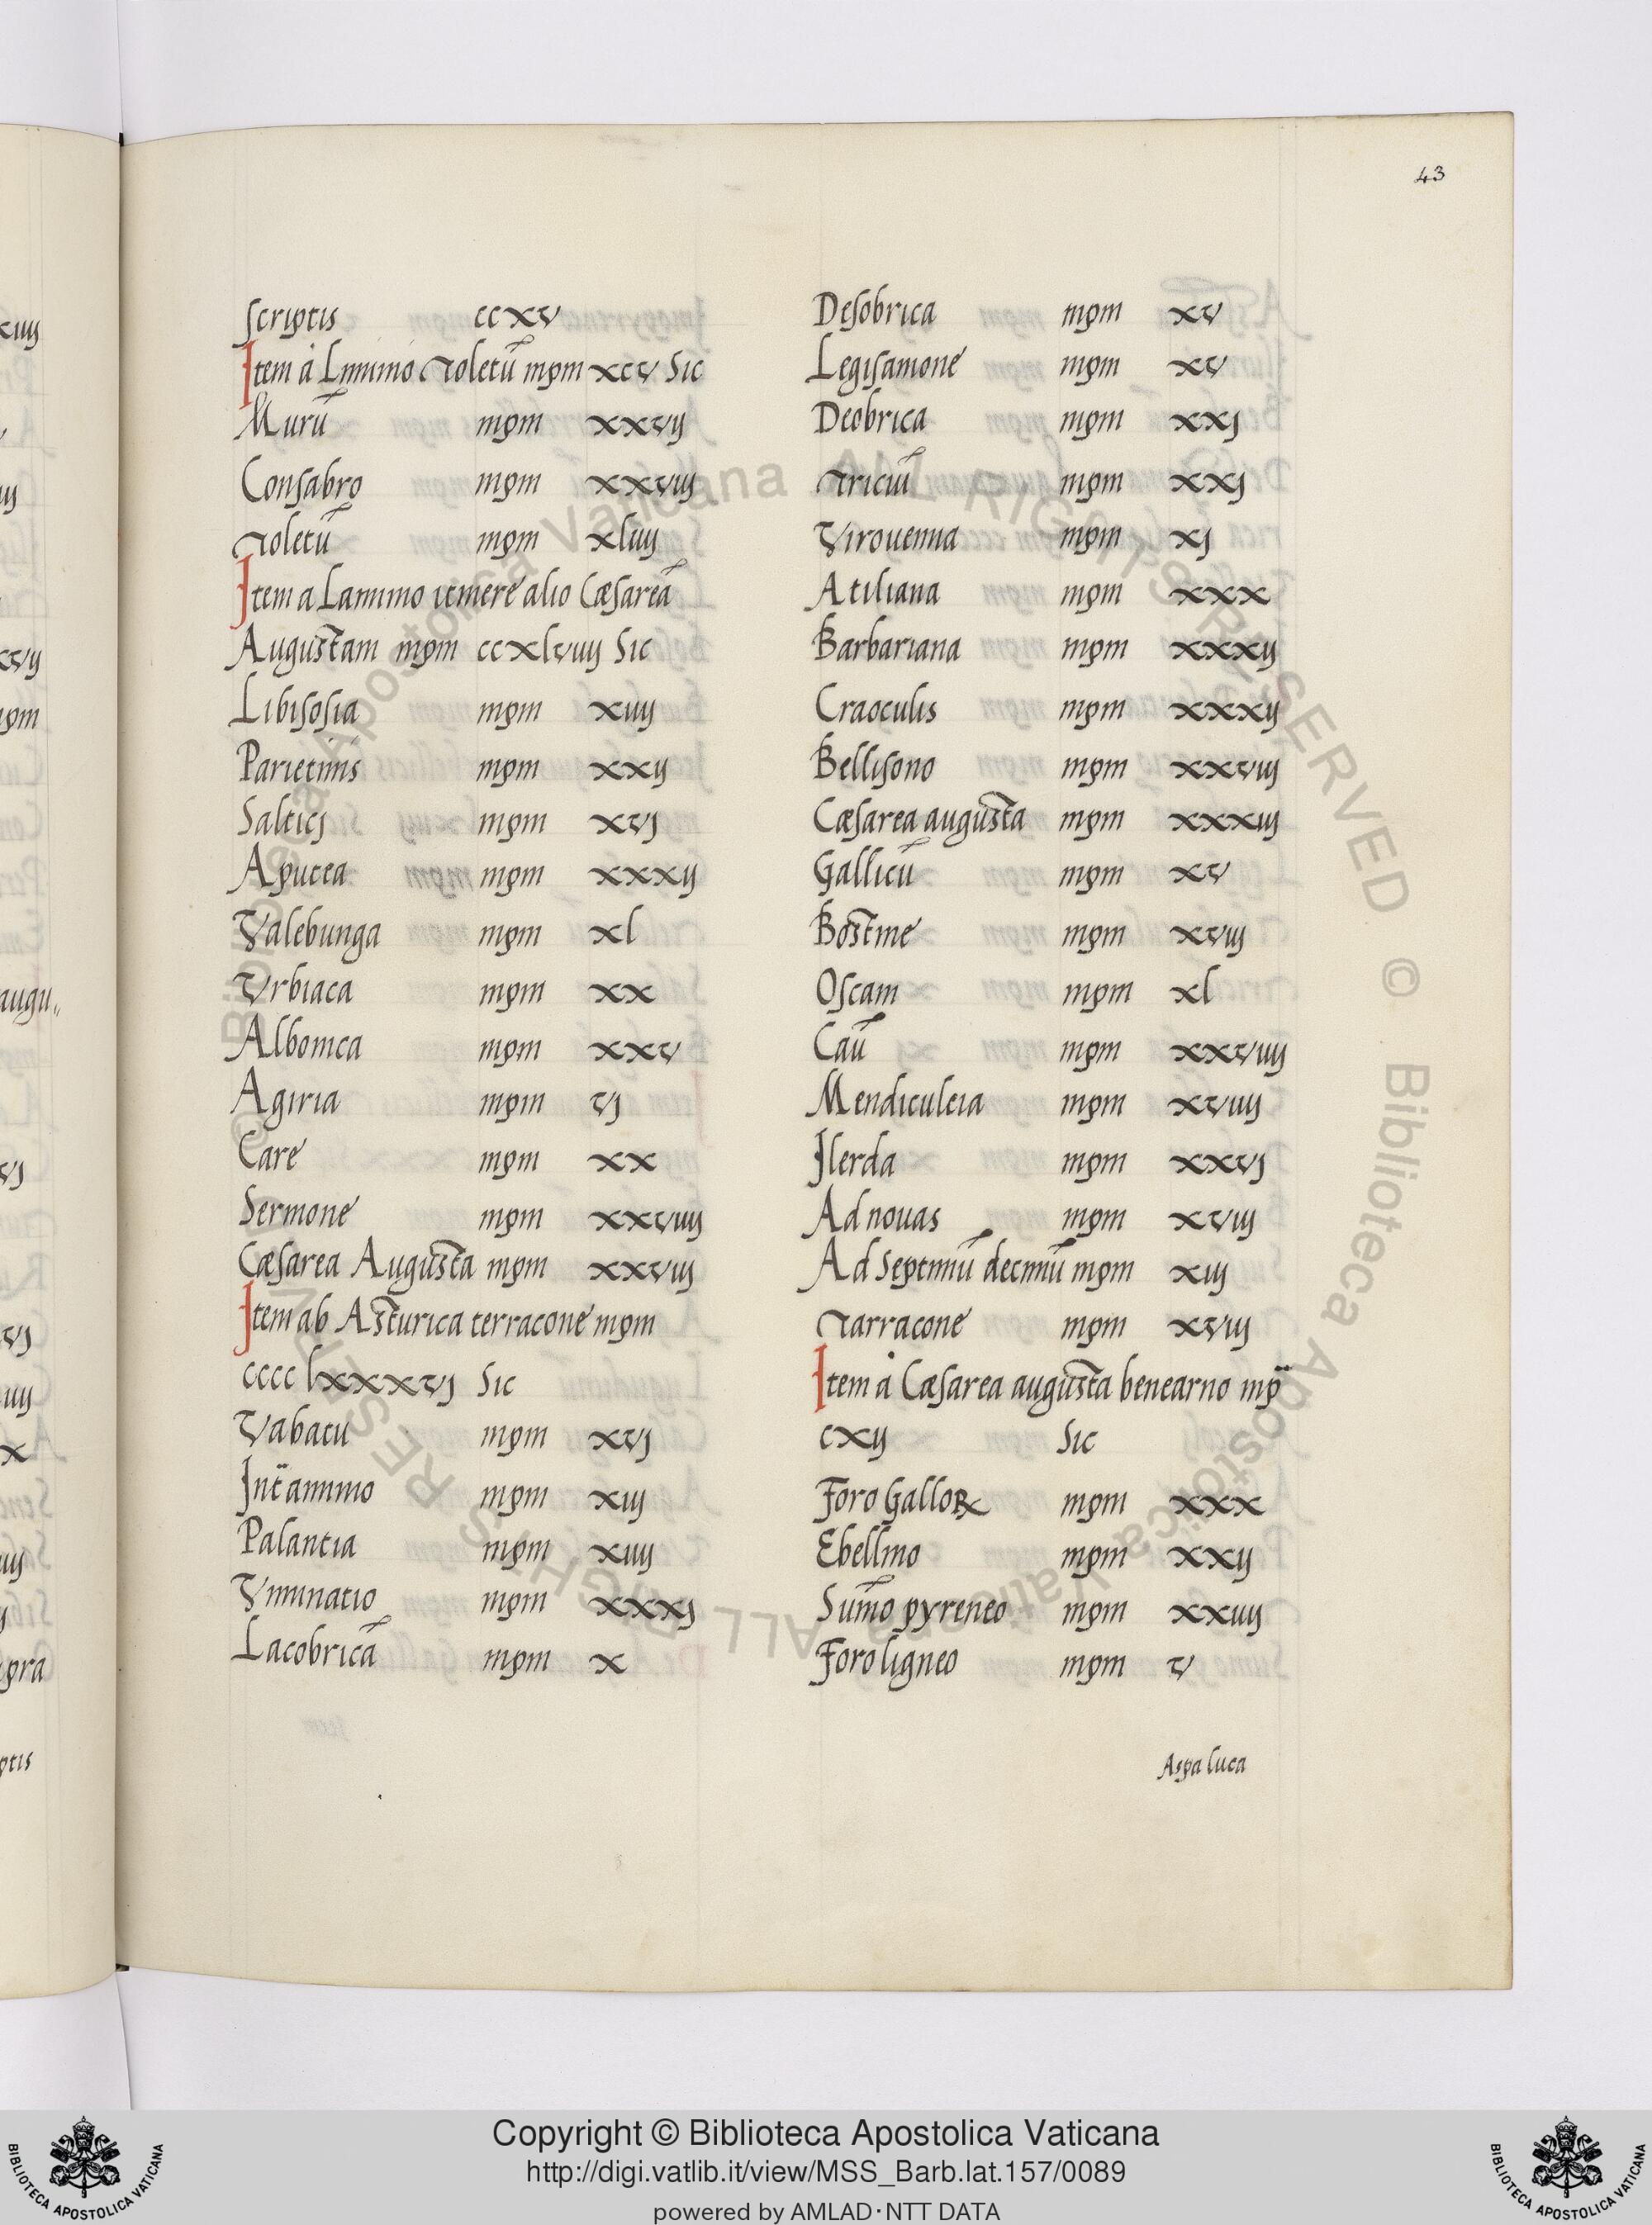 43
scriptis ccxv
Item à Liminio Toletũ mpm xcv Sic
Murũ mpm xxvij
Consabro mpm xxviij
Toletũ mpm xliiij
Item a Laminio itinere alio Cæsareã
Augustam mpm ccxlviiij Sic
Libisosia mpm xiiij
Parietinis mpm xxij
Saltici mpm xvj
Aputea mpm xxxij
Valebunga mpm xl
Vrbiaca mpm xx
Albonica mpm xxv
Agiria mpm vj
Care mpm xx
Sermone mpm xxviiij
Cæsarea Augusta mpm xxviij
Item ab Asturica terracone mpm
cccc lxxxvj Sic
Vabatu mpm xvj
Int̃aminio mpm xiij
Palantia mpm xiiij
Viminatio mpm xxxj
Lacobricã mpm x
Desobrica mpm xv
Legisamone mpm xv
Deobrica mpm xxj
Triciũ mpm xxj
Virouenna mpm xj
Atiliana mpm xxx
Barbariana mpm xxxij
Graoculis mpm xxxij
Bellisono mpm xxviij
Cæsarea augusta mpm xxxiij
Gallicũ mpm xv
Bostine mpm xviij
Oscam mpm xl
Caũ mpm xxviiij
Mendiculeia mpm xviiij
Ilerda mpm xxvj
Ad nouas mpm xviij
Ad Septimũ decimũ mpm xiij
Tarracone mpm xviij
Item à Cæsarea augusta benearno mp̃
cxij Sic
Foro Galloꝝ mpm xxx
Ebellino mpm xxij
Sum̃o pyreneo mpm xxiiij
Foro ligneo mpm v
Aspa luca
Copyright © Biblioteca Apostolica Vaticana
http://digi.vatlib.it/view/MSS_Barb.lat.157/0089
powered by AMLAD·NTT DATA